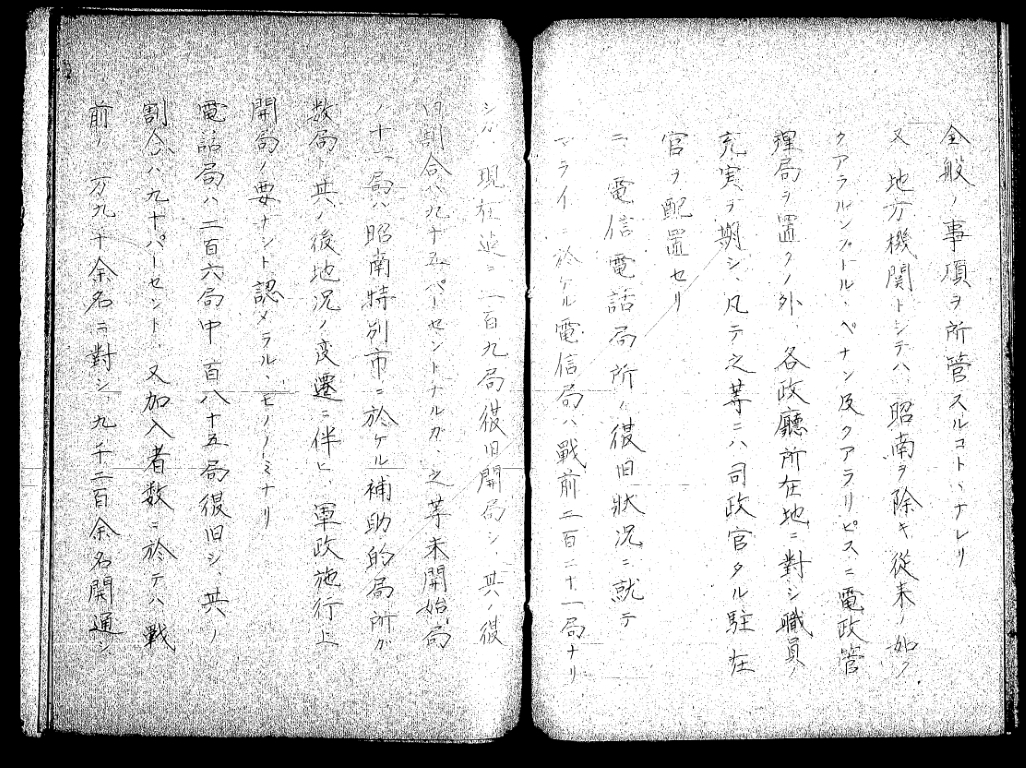 全般ノ事項ヲ所管スルコトハナレリ
又、地方機関トシテハ、昭南ヲ除キ、從来ノ如ク
クアラルンプール、ペナン及クアラリピスニ電政管
理局ヲ置クノ外、各政廳所在地ニ對シ職員ノ
充実ヲ期シ、凡テ之等ニハ司政官タル駐在
官ヲ配置セリ
二、電信電話局所ノ復旧狀況ニ就テ
マライニ於ケル電信局ハ戰前二百二十一局ナリ
シガ、現在迠ニ二百九局復旧開局シ、其ノ復
旧割合ハ九十五パーセントナルガ、之等未開始局
ノ十二局ハ昭南特別市ニ於ケル補助的局所ガ
数局ト其ノ後地況ノ変遷ニ伴ヒ、軍政施行上
開局ノ要ナシト認メラルヽモノノミナリ
電話局ハ二百六局中百八十五局復旧シ、其ノ
割合ハ九十パーセント、又加入者数ニ於テハ戰
前ノ一万九千余名ニ對シ、九千二百余名開通シ